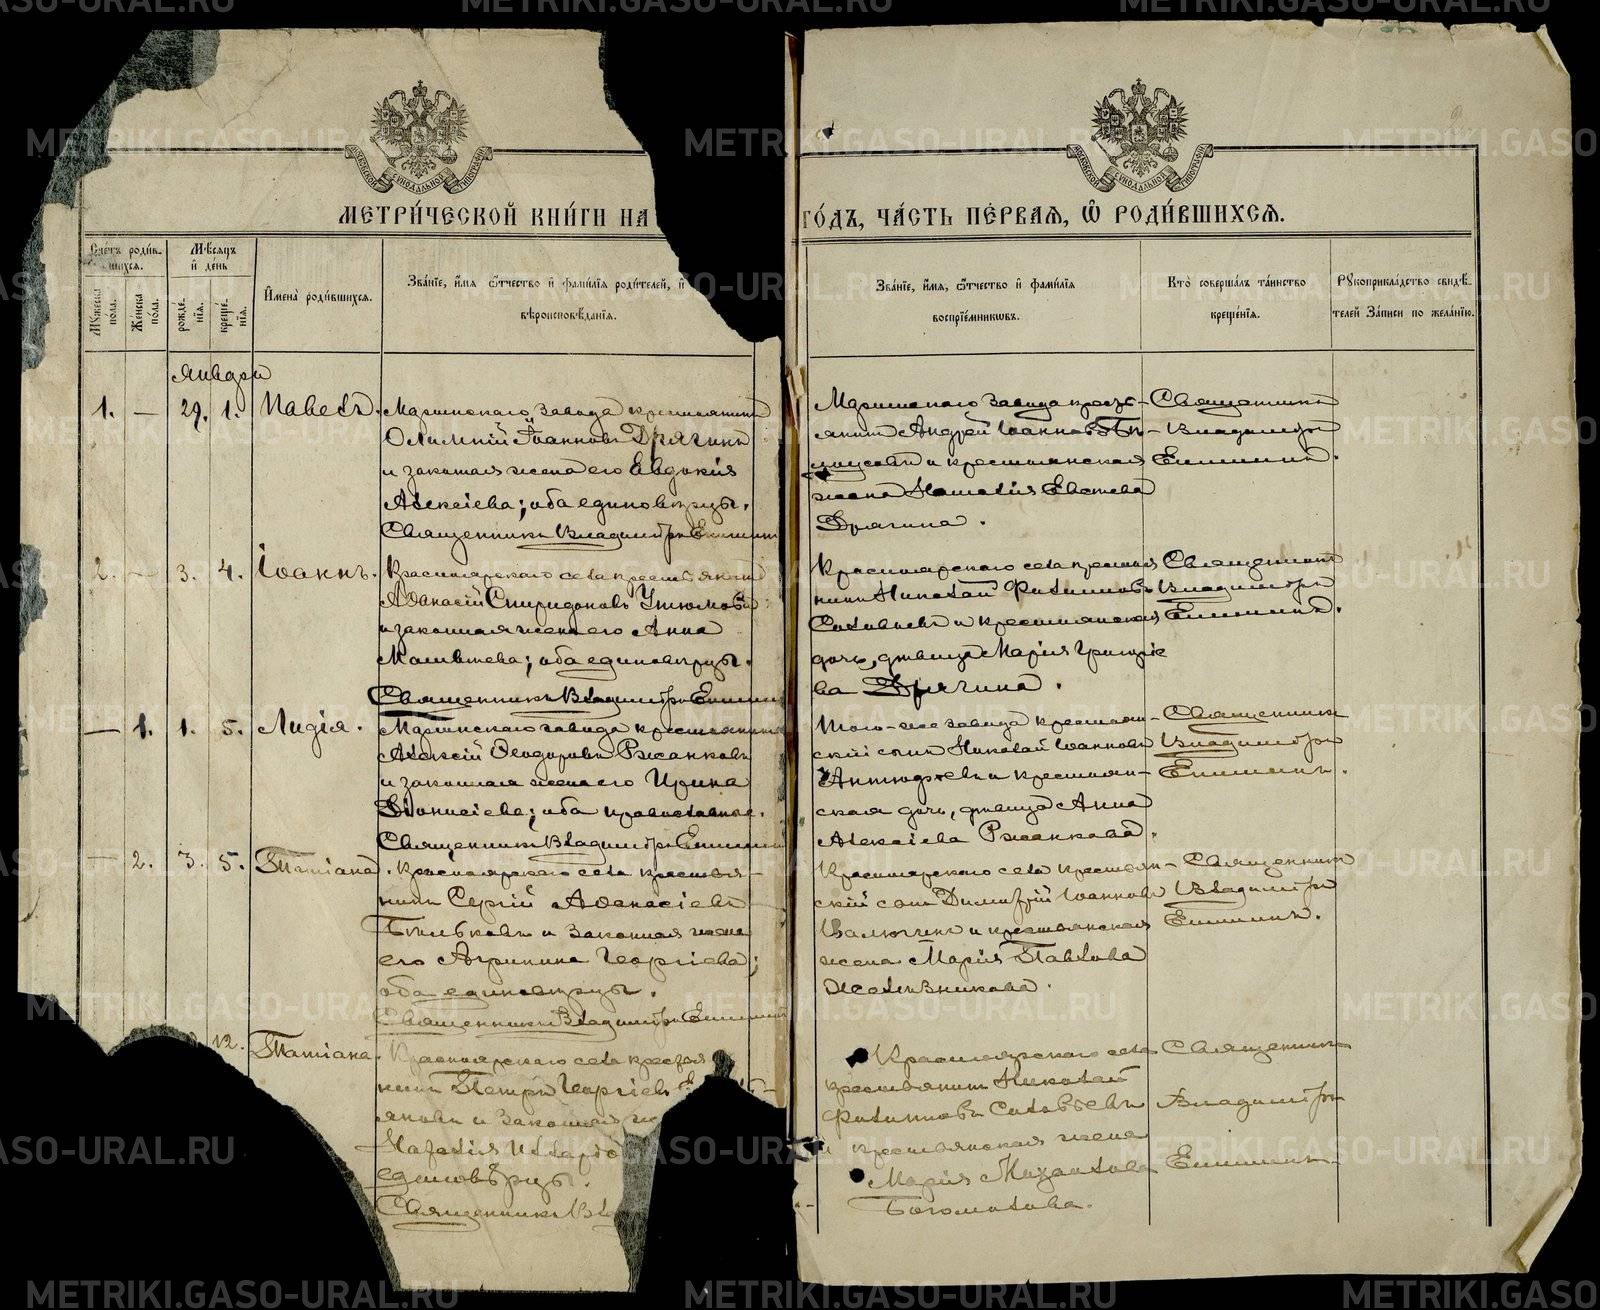 МЕТРИ́ЧЕСКОЙ КНИ́ГИ НА
ГО́ДЪ, ЧА́СТЬ ПЕ́РВАѦ, Ѿ РОДИ́ВШИХСѦ.
Сче́тъ роди́в-
шихсѧ.
Мѣ́сѧцъ
и де́нь
Мꙋжеска по́ла.
Же́нска по́ла.
рожде́нїѧ.
креще́нїѧ.
Имена̀ роди́вшихсѧ.
Зва́нїе, и́мѧ ѻ́тчество и фами́лїѧ роди́телей, и
вѣроисповѣ́данїѧ.
Зва́нїе, и́мѧ, ѻ́тчество и фами́лїѧ
воспрїе́мникѡвъ.
Кто̀ соверша́лъ та́инство
креще́нїѧ.
Рꙋкоприкла́дство свидѣ́-
телей за́писи по жела́нїю.
Января
1. — 29. 1. Павелъ.
Маріинскаго завода крестьянинъ
Іоанновъ Дрягинъ
и законная жена его Евдокія
Алексіева; оба единовѣрцы.
Священникъ Владиміръ
Маріинскаго завода кресть-
янинъ Андрей Іоанновъ
и крестьянская
жена Наталія
Дрягина.
Священникъ
Владиміръ
2. — 3. 4. Іоаннъ.
Красноярскаго села крестьянинъ
Аѳанасій Спиридоновъ Утюмовъ
и законная жена его Анна
Матвѣева; оба единовѣрцы.
Священникъ Владиміръ
Красноярскаго села крестья
нинъ Николай Филипповъ
Соловьевъ и крестьянская
дочь, дѣвица Марія Григоріе
ва Дрягина.
Священникъ
Владиміръ
— 1. 1. 5. Лидія.
Маріинскаго завода крестьянинъ
Алексій Ѳеодоровъ Ржанковъ
и законная жена его Ирина
Діонисіева; оба православные.
Священникъ Владиміръ
Того-же завода крестьян-
скій сынъ Николай Іоанновъ
и крестьян-
ская дочь, дѣвица Анна
Алексіева Ржанкова.
Священникъ
Владиміръ
— 2. 3. 5. Татіана.
Красноярскаго села крестья-
нинъ Сергій Аѳанасіевъ
Бѣльковъ и законная жена
его Агрипина Георгіева;
оба единовѣрцы.
Священникъ Владиміръ
Красноярскаго села крестьян-
скій сынъ Димитрій Іоанновъ
и крестьянская
жена Марія Павлова
Желѣзникова.
Священникъ
Владиміръ
12. Татіана.
Красноярскаго села крестья
нинъ Петръ Георгіевъ
яновъ и законная
Наталія
единовѣрцы.
Священникъ
Красноярскаго села
крестьянинъ Николай
Филипповъ Соловьевъ
и крестьянская жена
Марія
Богомолова.
Священникъ
Владиміръ
METRIKI.GASO-URAL.RU